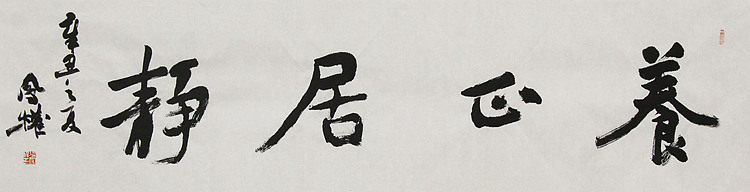 養正居靜
辛丑之夏